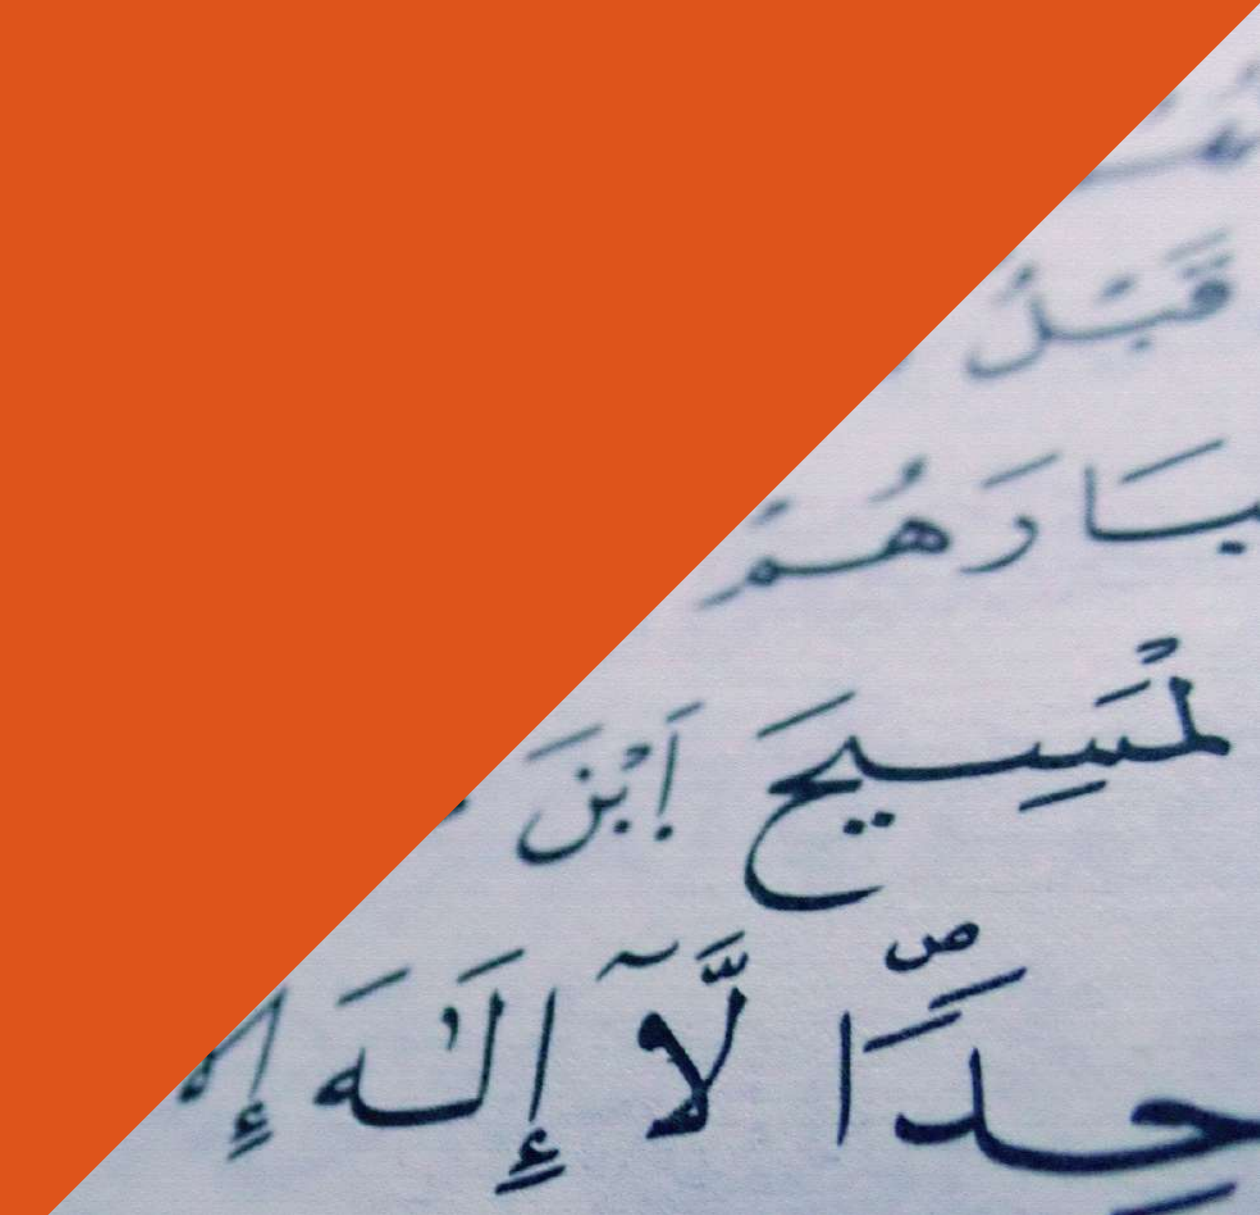 قَبْلُ
بَارَهُمْ
لْمَسِيحَ ٱبْنَ
حِدًا ۖ لَّآ إِلَٰهَ إِلَّا